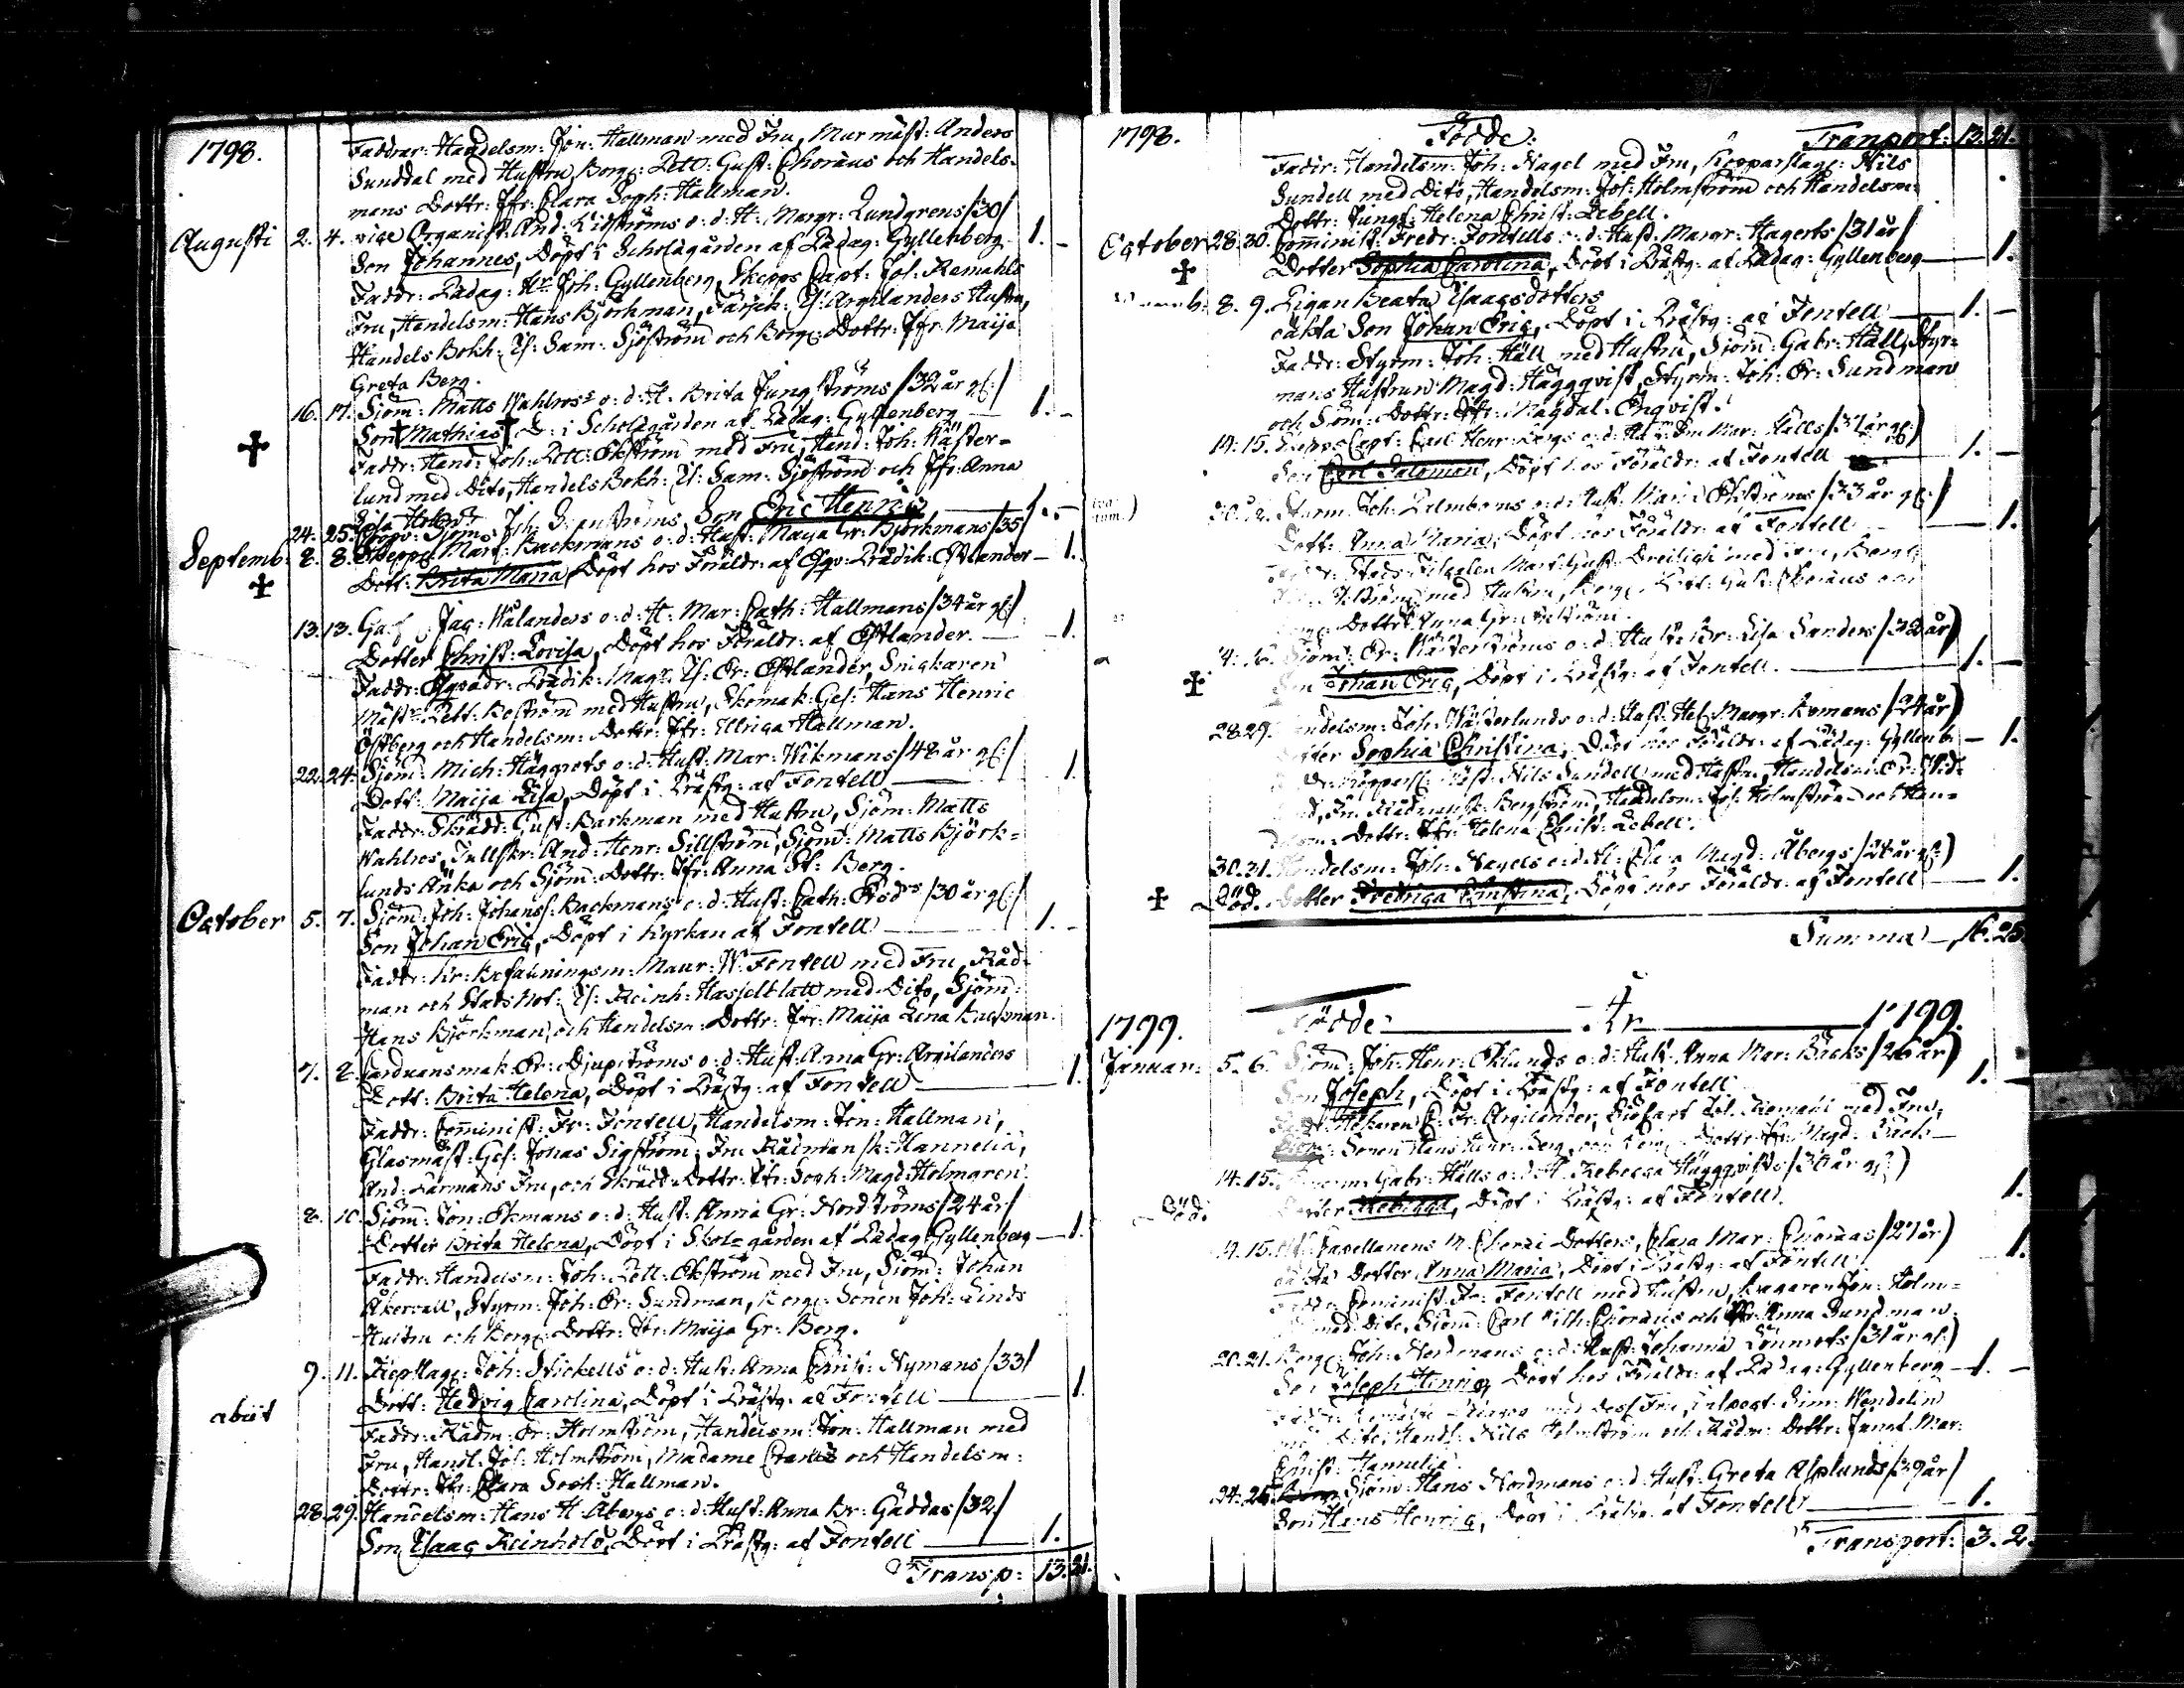 1798.
Faddrar: Handelsm: Jon: Hallman med Fru, Murmäst: Anders
Sunddal med Hustru, Borg: Pett: Gust: Choræus och Handels-
mans Dottr: Jfr: Clara Soph: Hallman.
Augusti 2. 4. vice Organist: And: Lidströms o: d: H: Margr: Lundgrens /30/
Son Johannes, Döpt i Scholægården af Pædag: Gyllenberg. 1. -
Faddr: Pædag: Hr Joh: Gyllenberg, Skepps Capt: Joh: Ramahls
Fru, Handelsm: Hans Björkman, Färsek: Is: Argilanders Hustru,
Handels Bokh: Is: Sam: Sjöström och Borg: Dottr: Jfr: Maija
Greta Berg.
16. 17. Sjöm: Matts Wahlros's o: d: H. Brita Jungströms /32 år gl:/
Son Mathias, D: i Scholægården af Pædag: Gyllenberg — 1. -
Faddr: Hand: Joh: Pett: Ekström med Fru, Hand: Joh: Wäster=
lund med Dito, Handels Bokh: Is: Sam: Sjöström och Jfr: Anna
Lisa
24. 25. Sjöms: Joh: Son Eric Henric — 1. -
Septemb: 8. 8. Skepps Mart: Backmans o: d: Hust: Maija Gr: Björkmans /35/
Dott: Brita Maria, Döpt hos Föräldr: af Esqv: Prædik: Estlander — 1.
13. 13. Jac: Wålanders o: d: H. Mar: Cath: Hallmans /34 år gl:/
Dotter Christ: Lovisa, Döpt hos Föräldr: af Estlander. — 1.
Faddr: Esqvadr: Prædik: Magr Is: Er: Estlander, Snickaren
Mästr Pett: Boström med Hustru, Skomak: Ges: Hans Henric
Östberg och Handelsm: Dottr: Jfr: Ulrica Hallman.
22. 24. Sjöm: Mich: Häggrots o: d: Hust: Mar: Wikmans /48 år gl:/
Dott: Maija Lisa, Döpt i Prästg: af Fontell — 1.
Faddr: Skrädd: Gust: Barkman med Hustru, Sjöm: Matts
Wahlros, Tullskr: And: Henr: Sillström, Sjöm: Matts Björk=
lunds Änka och Sjöm: Dottr: Jfr: Anna St: Berg.
October 5. 7. Sjöm: Joh: Johanss: Backmans o: d: Hust: Cath: Röds /30 år gl:/
Son Johan Eric, Döpt i Kyrkan af Fontell — 1. -
Faddr: Kr: Befallningsm: Maur: W: Fontell med Fru, Råd=
man och Stads Not: Is: Reinh: Hasselblatt med Dito, Sjöm:
Hans Björkman, och Handelsm: Dottr: Jfr: Maija Lena Backman.
7. 8. Carduansmak: Er: Djupströms o: d: Hust: Anna Gr: Argilanders
Dott: Brita Helena, Döpt i Prästg: af Fontell — 1.
Faddr: Comminist: Fr: Fontell, Handelsm: Jon: Hallman,
Glasmäst: Ges: Jonas Sigström, Fru Rådmansk: Hannelia,
And: Farmans Fru, och Skrädd: Dottr: Jfr: Soph: Magd: Holmgren.
8. 10. Sjöm: Jon: Ekmans o: d: Hust: Anna Gr: Nordströms /24 år/
Dotter Brita Helena, Döpt i Skole gården af Pædag Gyllenberg — 1.
Faddr: Handelsm: Joh: Pett: Ekström med Fru, Sjöm: Johan
Åkervall, Styrm: Joh: Er: Sundman, Borg: Sonen Joh: Linds
Hustru och Borg: Dottr: Jfr: Maija Gr: Berg.
9. 11. Joh: Nickells o: d: Hust: Anna Christ: Nymans /33/
abiit Dott: Hedvig Carolina, Döpt i Prästg: af Fontell — 1.
Faddr: Rådm: Er: Holmström, Handelsm: Jon: Hallman med
Fru, Handl: Jos: Holmström, Madame och Handelsm:
Dottr: Jfr: Clara Soph: Hallman.
28. 29. Handelsm: Hans H. Åbergs o: d: Hust: Anna Br: Gäddas /32/
Son Isaac Reinhold, Döpt i Prästg: af Fontell — 1.
Transp: 13. 21.
1798. Födde: Tranport: 13. 21.
Faddr: Handelsm: Joh: Nagel med Fru, Kopparslag: Nils
Sundell med Dito, Handelsm: Jos: Holmström och Handelsm:
Dottr: Jungf: Helena Christ: Lebell.
October 28. 30. Comminist: Fredr: Fontells o: d: Hust: Margr: Hagerts /31 år/
Dotter Sophia Carolina, Döpt i Prästg: af Pædag: Gyllenberg — 1.
8. 9. Pigan Beata Isaacsdotters
oäkta Son Johan Eric, Döpt i Prästg: af Fontell — 1. -
Faddr: Styrm: Joh: Häll med Hustru, Sjöm: Gabr: Häll, Styr=
mans Hustrun Magd: Häggqvist, Styrm: Joh: Er: Sundman
och Sjöm: Dottr: Jfr: Magdal: Enqvist.
14. 15. Skepps Capt: Carl Henr: Bergs o: d: Mar: Hälls /37 år gl:/
Son Carl Salomon, Döpt hos Föräldr: af Fontell — 1. -
Styrm: Joh: Palmboms o: d: Hust: Maria Ekströms /33 år gl:/
Dott: Anna Maria, Döpt hos Föräldr: af Fontell — 1.
Faddr: Stads Fiskalen Mart: Gust: med Fru, Borg:
med Hustru, Borg: Pett: Gust: Choræus och
Dottr: Anna Gr:
14. 16. Sjöm: Er: Wästerströms o: d: Hust: Br: Lisa Sunders /32 år/
Son Johan Eric, Döpt i Prästg: af Fontell. — 1. -
28. 29. Handelsm: Joh: Wästerlunds o: d: Hust: Hel: Margr: Åkmans /24 år/
Dotter Sophia Christina, Döpt hos Föräldr: af Pædag: Gyllenb: — 1.
Faddr: Nils Sundell med Hustru, Handelsm: Er:
Fru Rådmansk: Bergström, Handelsm: Jos: Holmström och Han=
delsm: Dottr: Jfr: Helena Christ: Lebell.
30. 31. Handelsm: Joh: Nagels o: d: H: Clara Magd: Åbergs /26 år gl:/
Död. Dotter Fredrica Christina, Döpt hos Föräldr: af Fontell — 1.
Summa — 16. 25.
1799. Födde — År — 1799.
Januari: 5. 6. Sjöm: Joh: Henr: Eklunds o: d: Hust: Anna Mar: Bäcks /26 år/
Son Joseph, Döpt i Prästg: af Fontell — 1. -
Argilander, Joh: Remahl med Fru,
Sonen Hans Henr: Berg, och Dottr: Jfr: Magd: Bäck
14. 15. Gabr: Hälls o: d: H. Rebecca Häggqvists /36 år gl:/
Död. Dotter Rebecca, Döpt i Prästg: af Fontell. 1.
14. 15. Capellanens Dotters, Clara Mar: Choræas /27 år/
oäkta Dotter Anna Maria, Döpt i Prästg: af Fontell — 1.
Faddr: Comminist: Fr: Fontell med Hustru, Bagaren Jon: Holm=
med Dito, Sjöm: Carl Wilh: Choræus och Jfr: Anna Sundman.
20. 21. Borg: Joh: Nordmans o: d: Hust: Johanna Lönnrots /31 år gl:/
Son Joseph Henric, Döpt hos Föräldr: af Pædag: Gyllenberg — 1. -
Sim: Wendelin
med Dito, Handl: Nils Holmström och Rådm: Dottr: Jungf: Mar:
Christ: Hannelia.
24. 25. Sjöm: Hans Nordmans o: d: Hust: Greta Asplunds /39 år/
Son Hans Henric, Döpt i Prästg: af Fontell — 1.
Transport: 3. 2.